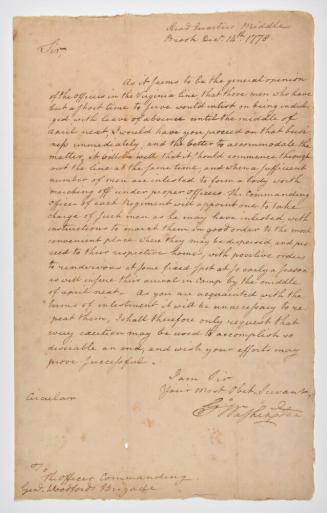 Head Quarters Middle
Brook Decr. 14th. 1778.
Sir
As it seems to be the general opinion
of the officers in the Virginia line, that those men who have
but a short time to serve would inlist on being indul-
ged with leave of absence untill the middle of
april next, I would have you proceed on that busi-
ness immediately, and the better to accommodate the
matter, it will be well that it should commence through
out the line at the same time, and when a sufficient
number of men are inlisted to form a body worth
marching off under proper officers. The commanding
officer of each Regiment will appoint one to take
charge of such men as he may have inlisted, with
instructions to march them in good order to the most
convenient place where they may be dispersed, and pro
ceed to their respective homes, with positive orders
to rendezvous at some fixed spot at so early a season
as will insure their arrival in Camp by the middle
of april next. As you are acquainted with the
terms of inlistment it will be unnecessary to re
peat them, I shall therefore only request that
every exertion may be used to accomplish so
desirable an end, and wish your efforts may
prove successful.
I am Sir
Your Most Obet. Servant
Go. Washington
Circular
To
The Officer Commanding
Genl. Woodfords Brigade